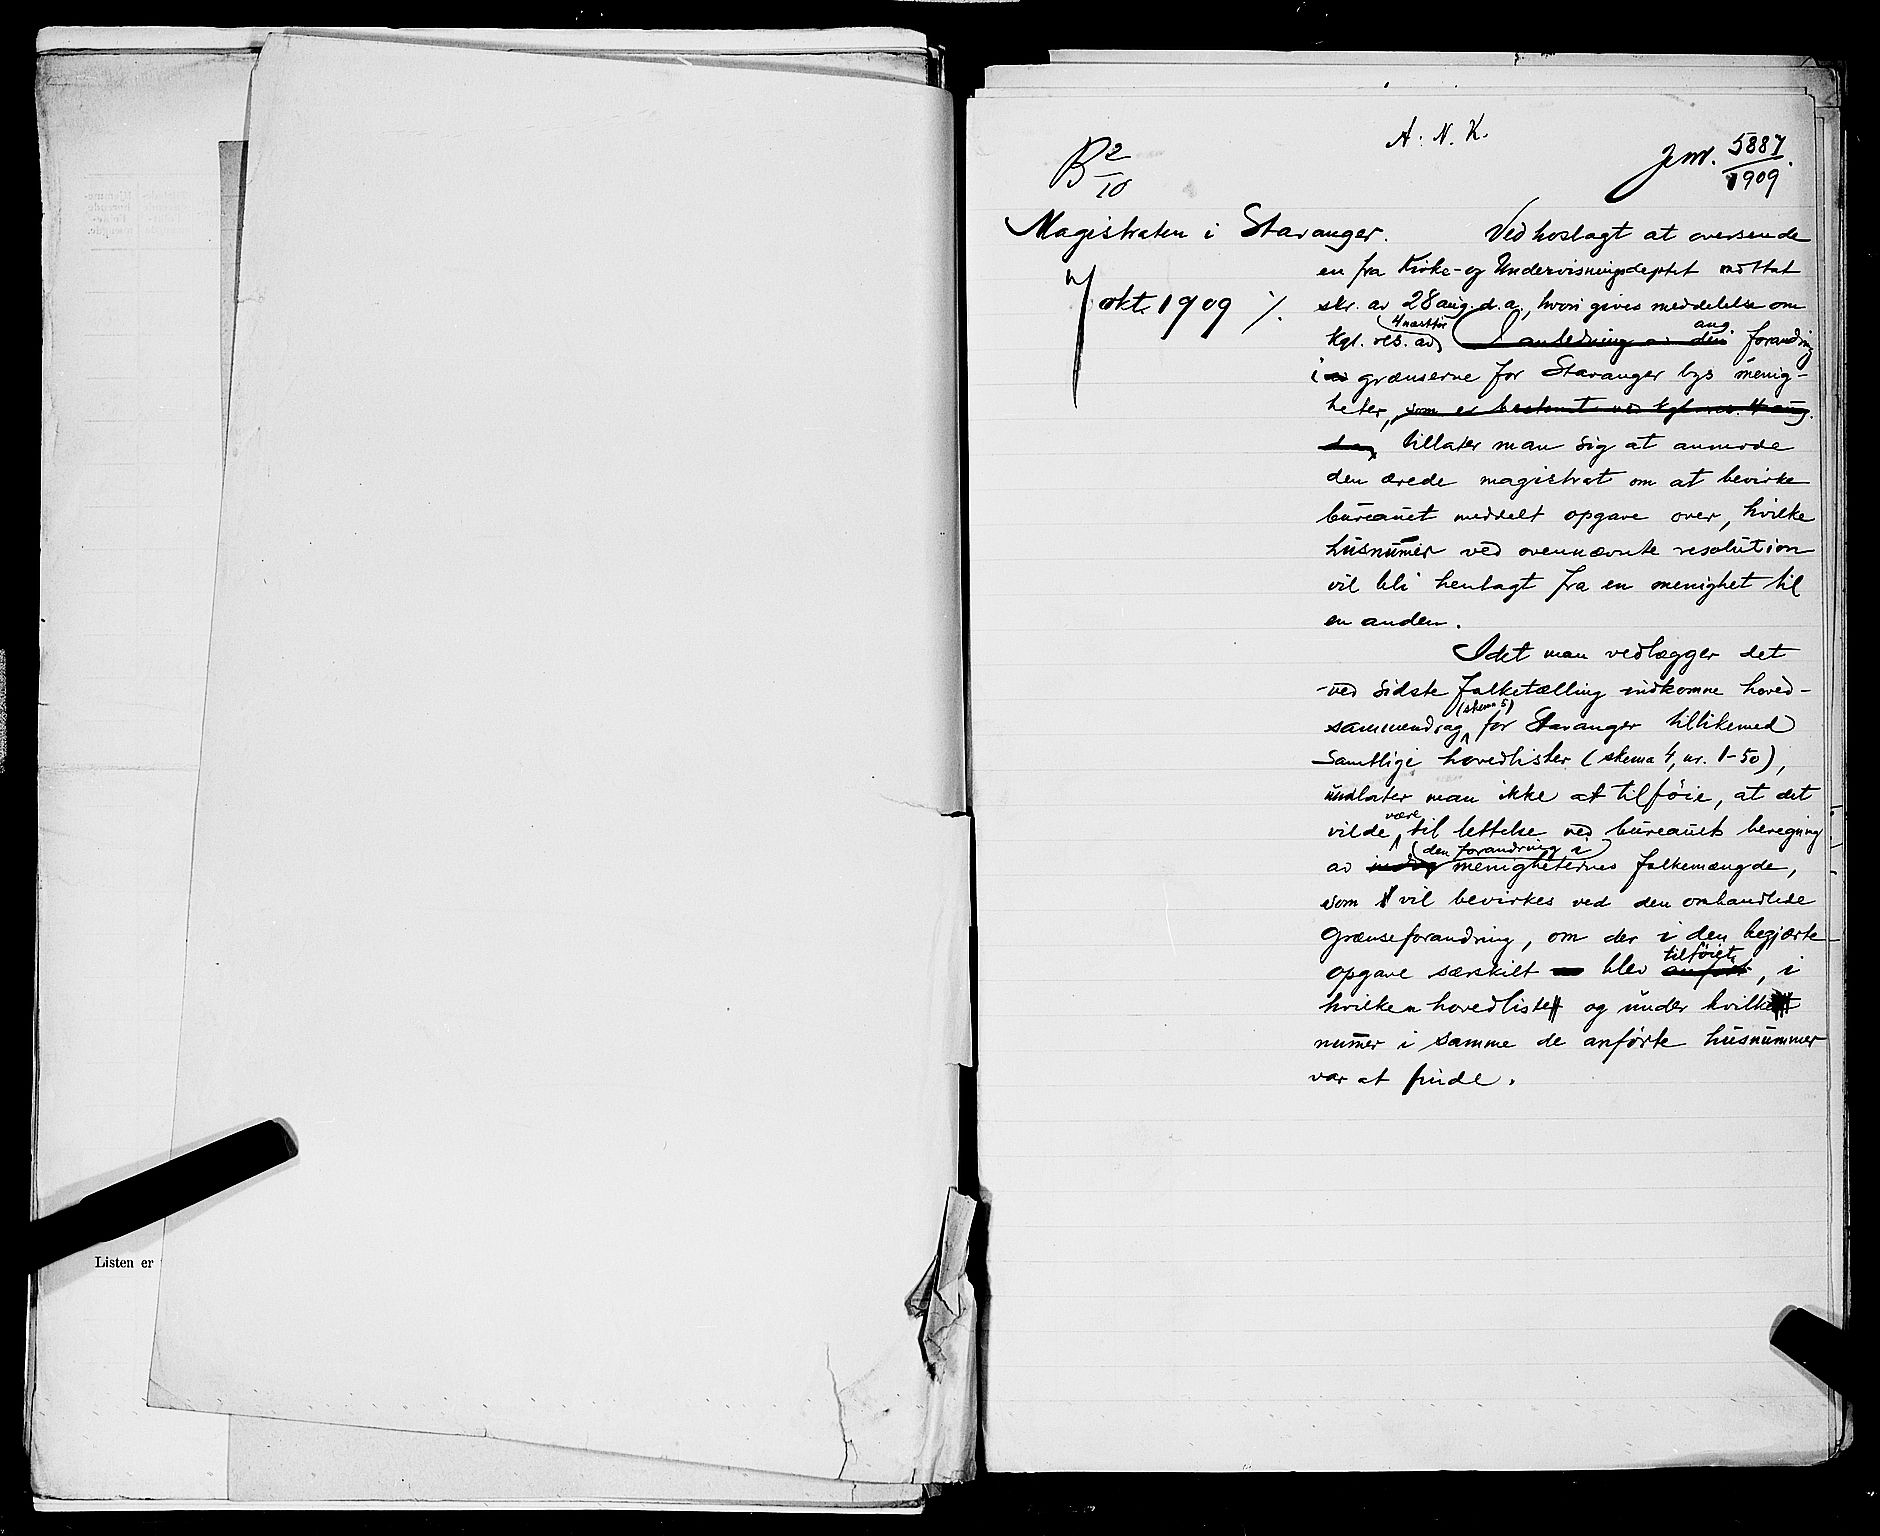 Listen er
A. N. K.
B 2/10
Jnr. 5887/1909.
Magistraten i Stavanger.
7 okt. 1909 ./.
Ved hoslagt at oversende
en fra Kirke- og Undervisningsdeptet mottat
skr. av 28 aug. d.a., hvori gives meddelelse om
kgl. res. av 4 næstfør I anledning av den ang. forandring
i av grænserne for Stavanger bys menig-
heter, som er bestemt ved kgl. res. 4 aug.
d.a., tillater man sig at anmode
den ærede magistrat om at bevirke
bureauet meddelt opgave over, hvilke
husnum̅er ved ovennævnte resolution
vil bli henlagt fra en menighet til
en anden.
Idet man vedlægger det
ved sidste folketælling indkomne hoved-
sammendrag (skema 5) for Stavanger tillikemed
samtlige hovedlister (skema 4, nr. 1-50),
undlater man ikke at tilføie, at det
vilde være til lettelse ved bureauets beregning
av den forandring i menigheternes folkemængde,
som vil bevirkes ved den omhandlede
grænseforandring, om der i den begjærte
opgave særskilt blev anført tilføiet, i
hvilken hovedliste og under hvilket
num̅er i samme de anførte husnummer
var at finde.